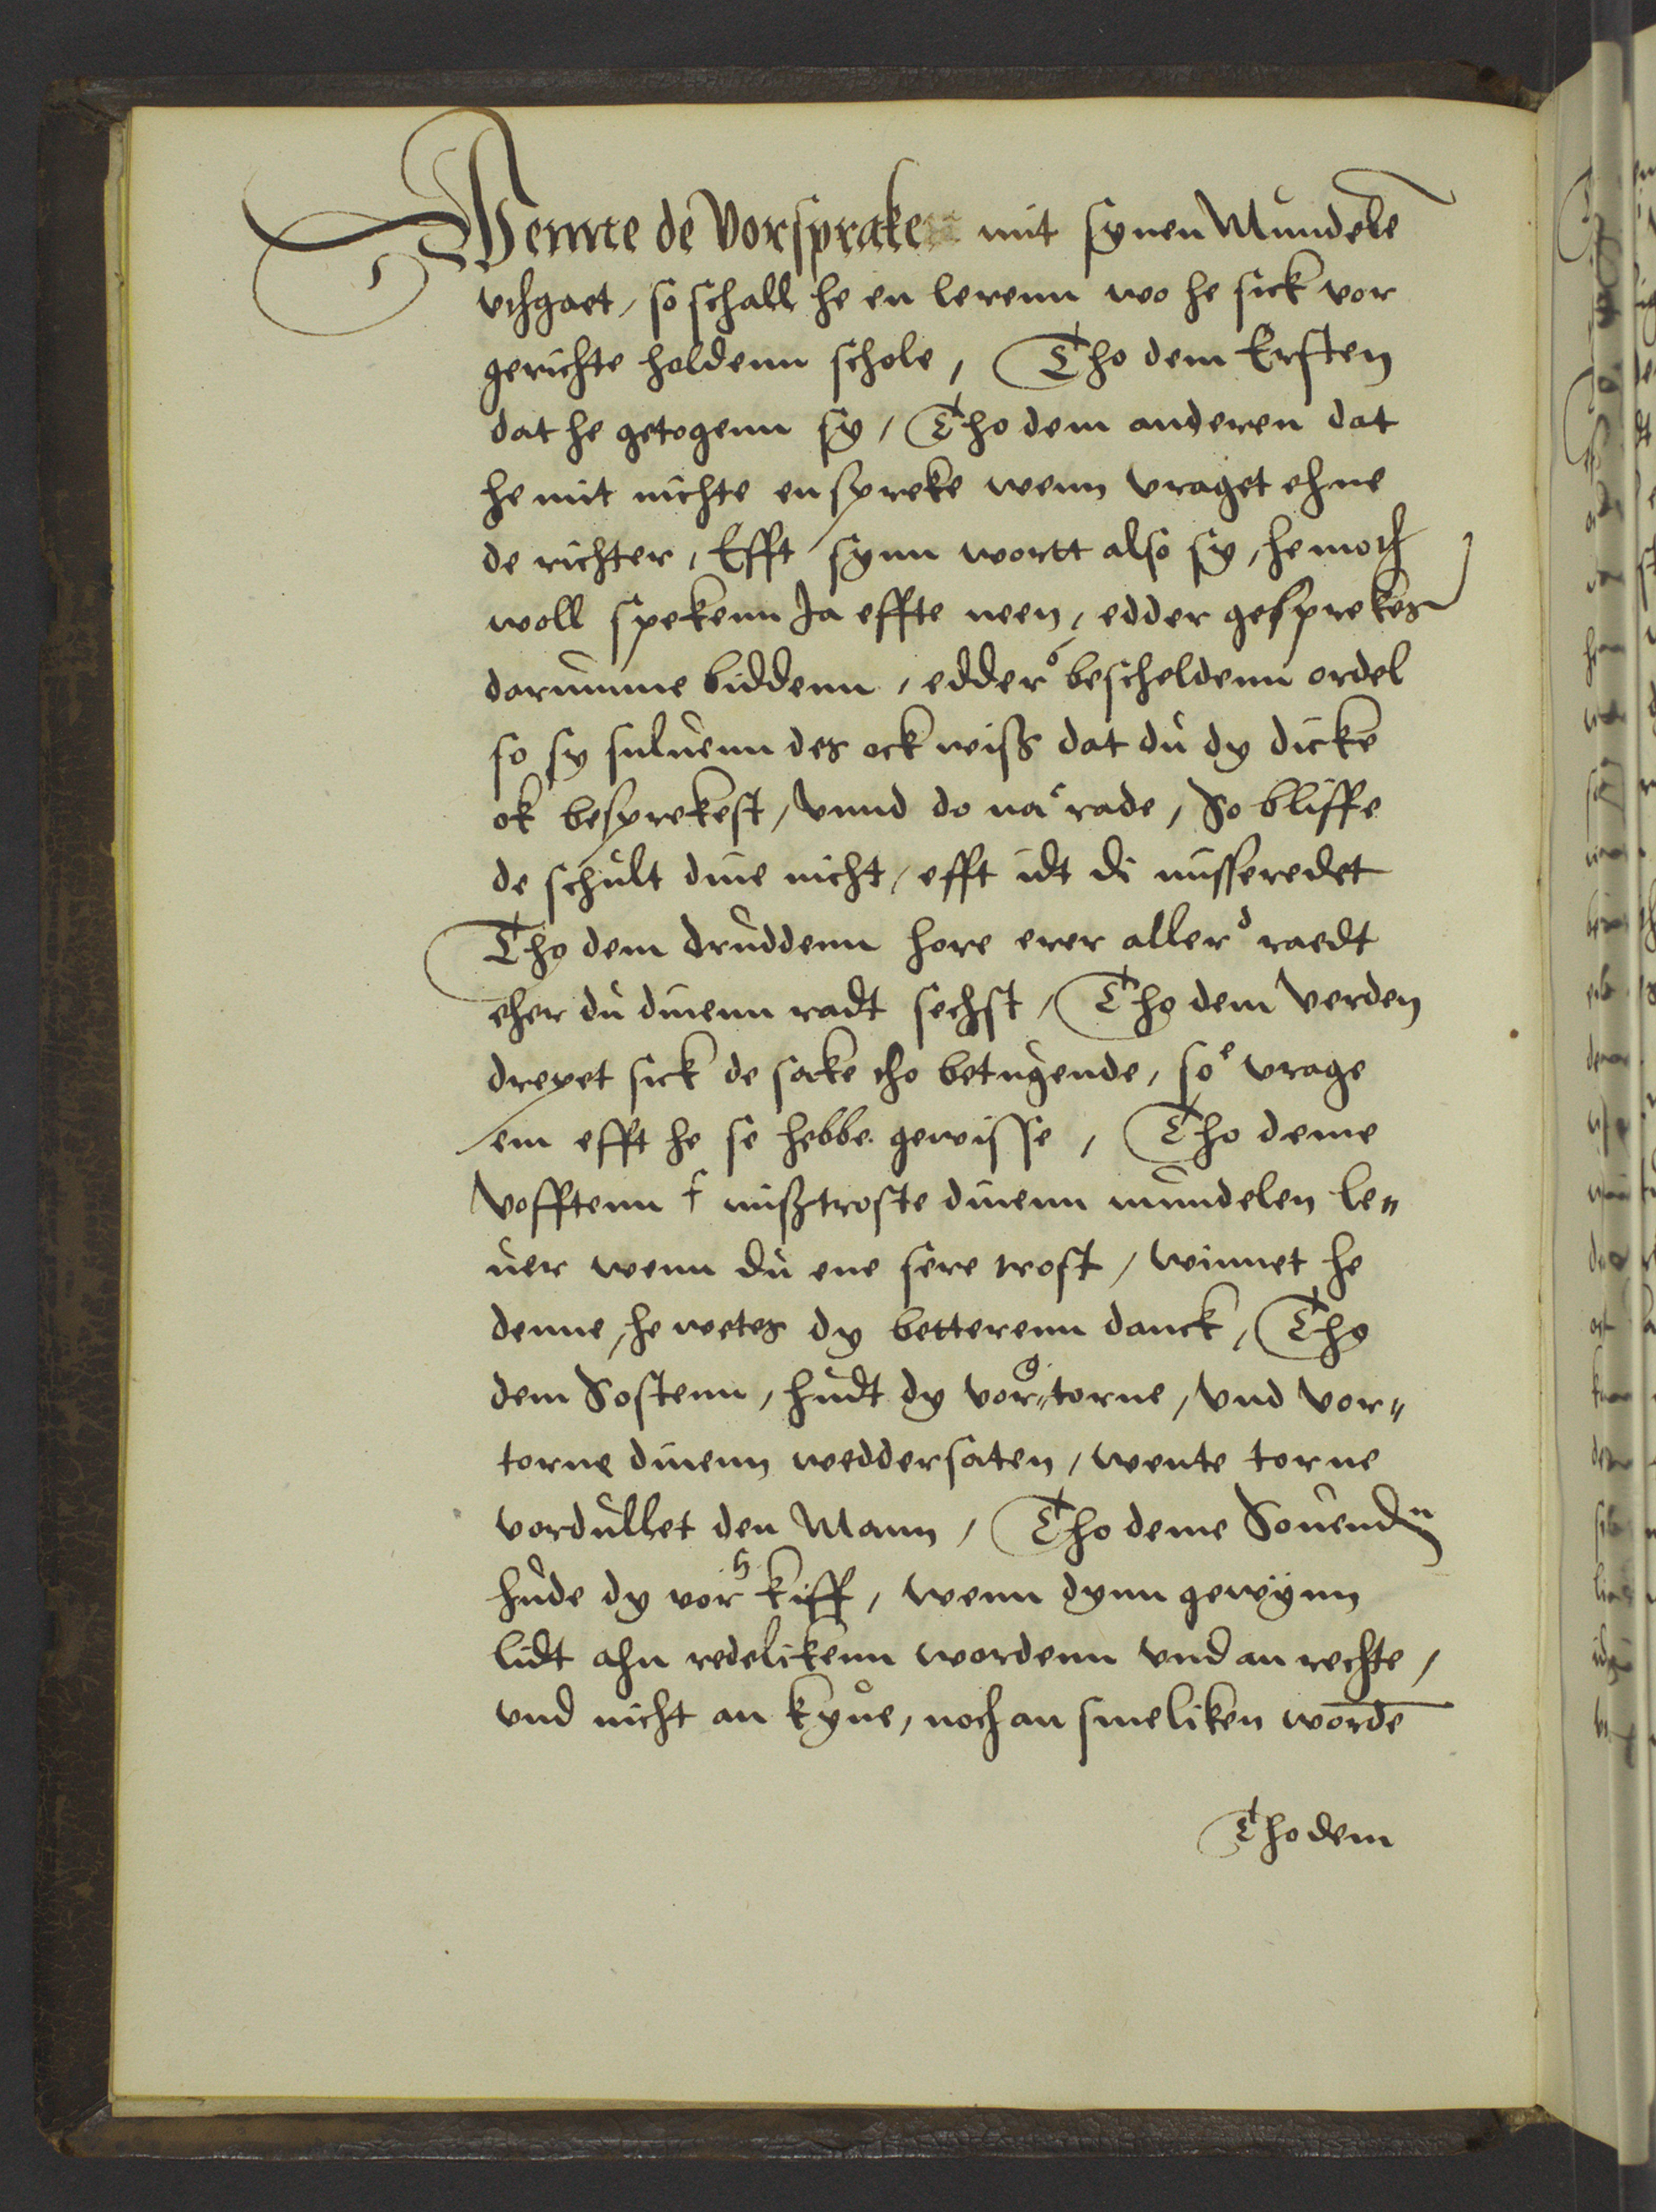 Wennte de Vorsprake mit synen Mundele
vthgaet, so schall he en lerenn wo he sick vor
gerichte holdenn schole, Tho dem Ersten
dat he getogenn sy, Tho dem anderen dat
he mit nichte en spreke wenn vraget ehne
de richter, Efft synn wortt also sy, he moth
woll spekenn Ja effte neen, edder gesprekes
darumme biddenn, edder b bescheldenn ordel
so sy suluenn des ock wiss dat du dy dicke
ok besprekest, vnnd do na c rade, So bliffe
de schult dine nicht, efft idt di misseredet
Tho dem druddenn hore erer aller d raedt
eher du dinenn radt sechst, Tho dem verden
drepet sick de sake tho betugende, so e vrage
em efft he se hebbe gewisse, Tho deme
Vofftenn f mißtroste dinenn mundelen le„
uer wenn du ene sere trost, winnet he
denne, he wetes dy betterenn danck, Tho
dem Sostenn, hudt dy vor„ g torne, vnd vor„
torne dinenn weddersaten, wente torne
vordullet den Mann, Tho deme Souenden
hude dy vor h kiff, wenn dynn gewynn
lidt ahn redelikenn wordenn vnd an rechte,
vnd nicht an kyue, noch an smeliken worde
Tho dem